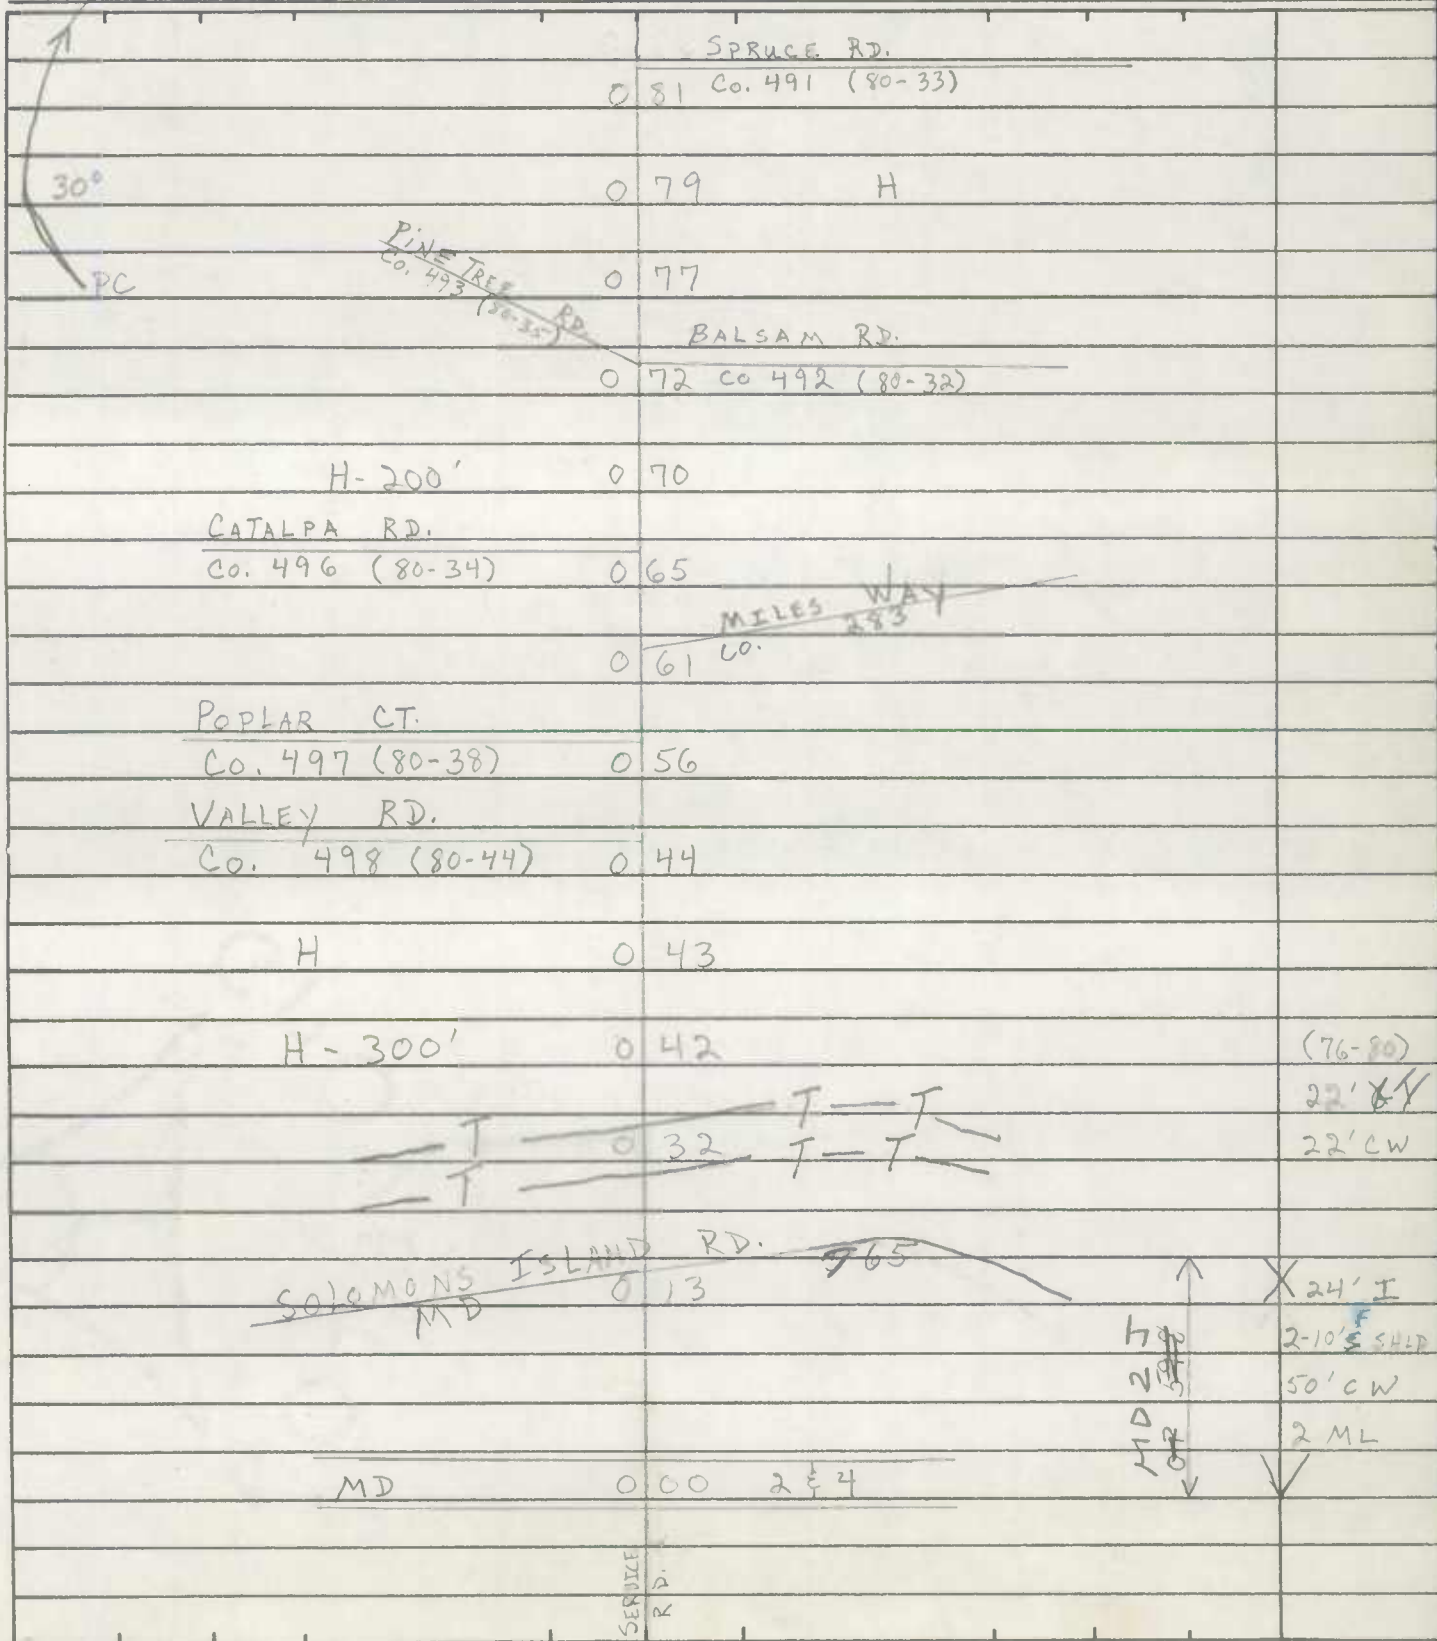 SPRUCE RD.
0 81 Co. 491 (80-33)
30° 0 79 H
PINE TREE RD.
Co. 493 (80-35)
PC 0 77
BALSAM RD.
0 72 Co 492 (80-32)
H-200' 0 70
CATALPA RD.
Co. 496 (80-34) 0 65
MILES WAY
0 61 Co. 283
POPLAR CT.
Co. 497 (80-38) 0 56
VALLEY RD.
Co. 498 (80-44) 0 44
H 0 43
H - 300' 0 42 (76-80)
22'
T T T
0 32 22' CW
T T T
SOLOMONS ISLAND RD. 765
MD 0 13 24' I
2-10' SHLD
MD 2
50' CW
2 ML
MD 0 00 2 & 4
SERVICE RD.